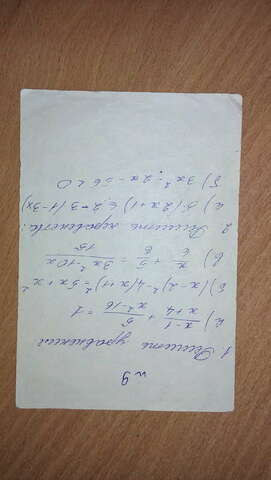 № 9
1. Решите уравнения
а) x-1/x+4 + 5/x²-16 = 1
б) (x-2)²-4(x+1)²=5x+x²
в) x/2 + 5/6 = 3x²-10x/15
2. Решите неравенства:
а) 5(2x+1) ≤ 2-3(1-3x)
б) 3x²-2x-56≤0